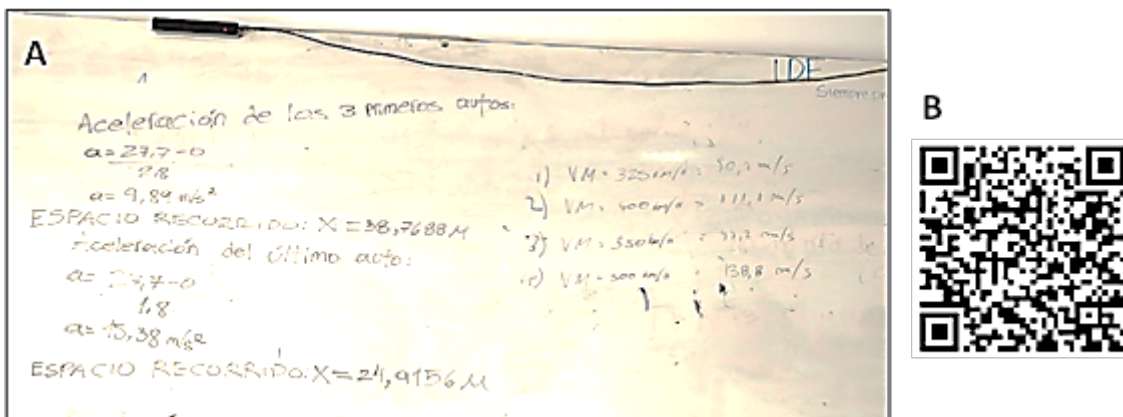 A
Aceleración de los 3 primeros autos:
a= 27,7-0
2,8
a= 9,89 m/s²
ESPACIO RECORRIDO: X=38,7688M
Aceleración del último auto:
a= 27,7-0
1,8
a= 15,38 m/s²
ESPACIO RECORRIDO: X=24,9156M
IDE
Siempre
1) VM = 325 = 90,2 m/s
2) VM = 400 = 111,1 m/s
3) VM = 350 = 97,2 m/s
VM = 500 = 138,8 m/s
B